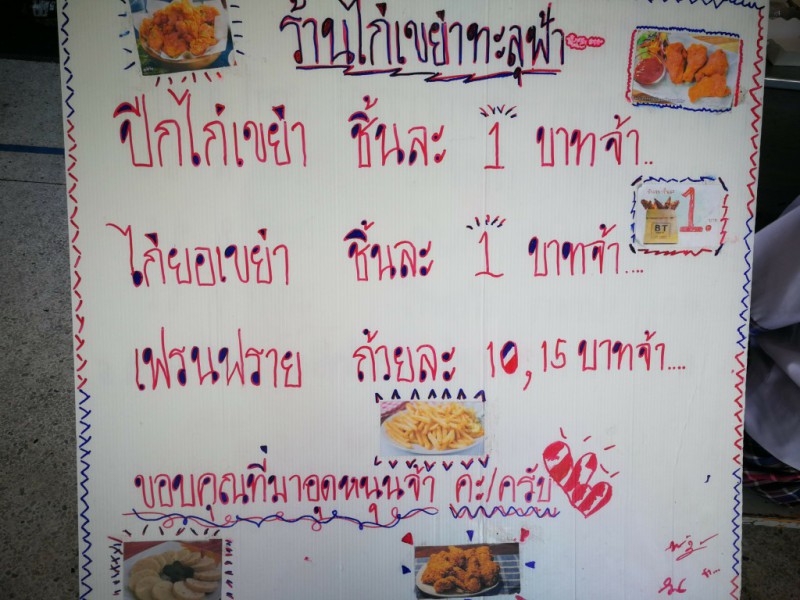 ร้านไก่เขย่าทะลุฟ้า
ปีกไก่เขย่า ชิ้นละ 1 บาทจ้า..
1.
BT
ไก่ยอเขย่า ชิ้นละ 1 บาทจ้า....
เฟรนฟราย ถ้วยละ 10,15 บาทจ้า....
ขอบคุณที่มาอุดหนุนจ้า คะ/ครับ